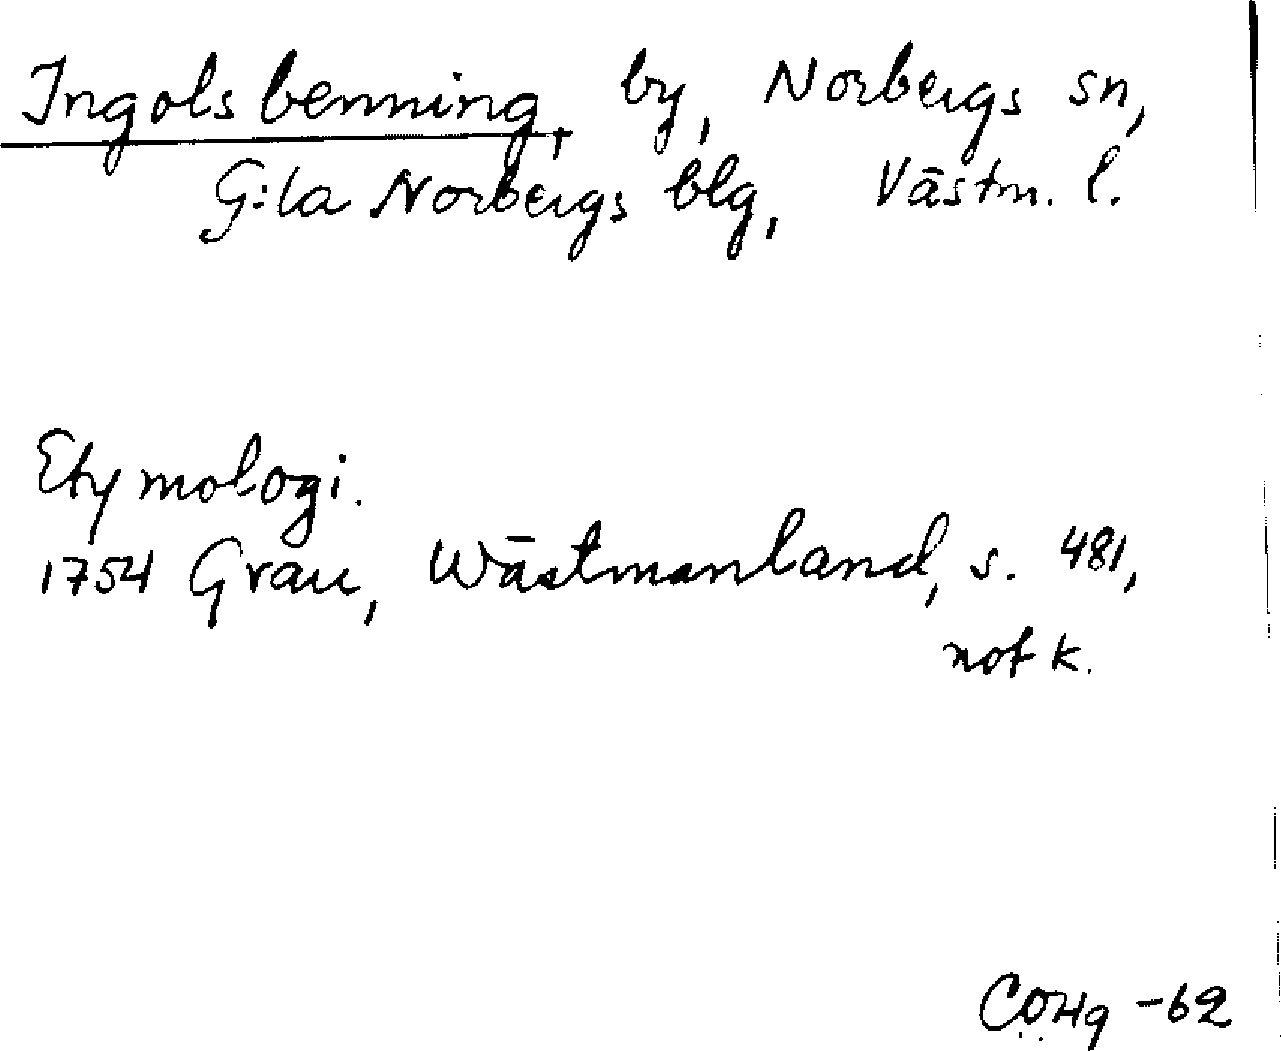 Ingolsbenning, by, Norbergs sn,
G:la Norbergs blg, Västm. l.
Etymologi.
1754 Grau, Wästmanland, s. 481,
not k.
CÖHg -62